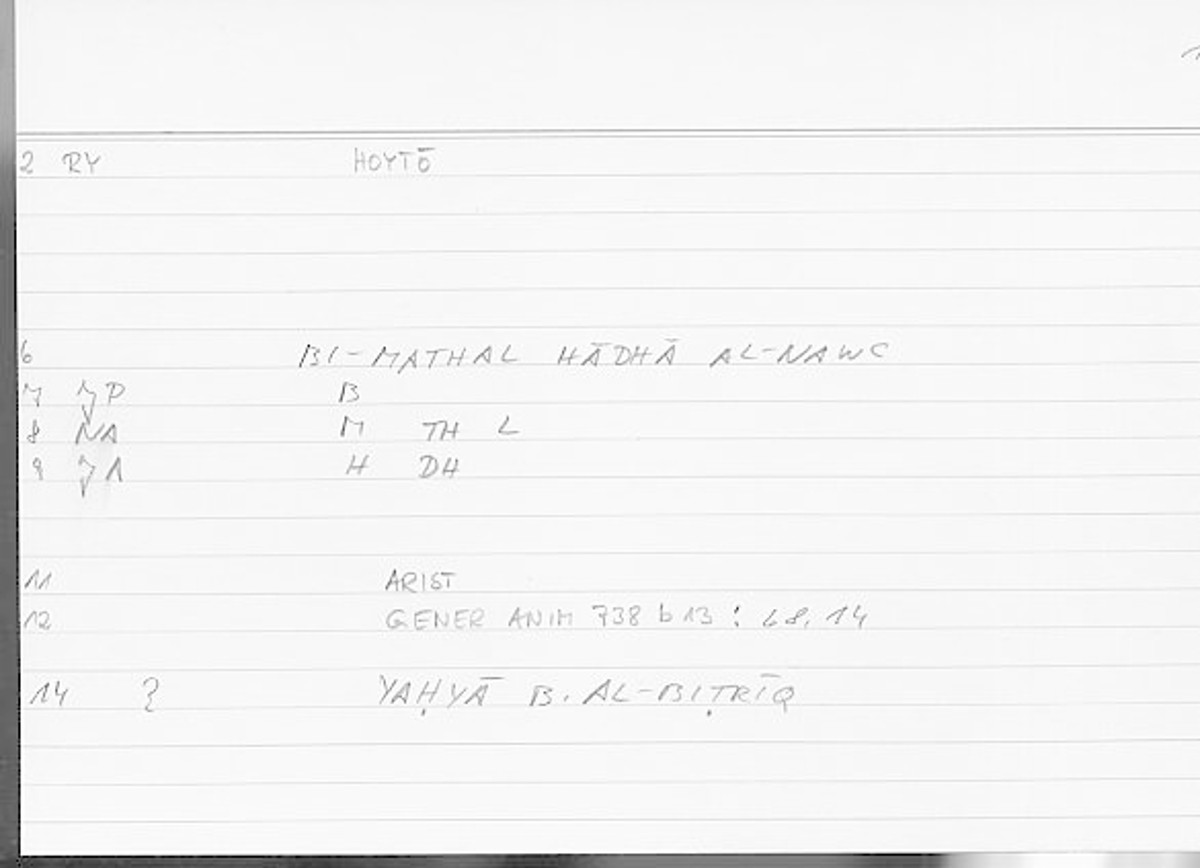 2 RY HOYTŌ
6 BI-MATHAL HĀDHĀ AL-NAWC
7 P B
8 NA M TH L
9 H DH
11 ARIST
12 GENER ANIM 738 b 13 : 68, 14
14 YAḤYĀ B. AL-BIṬRĪQ